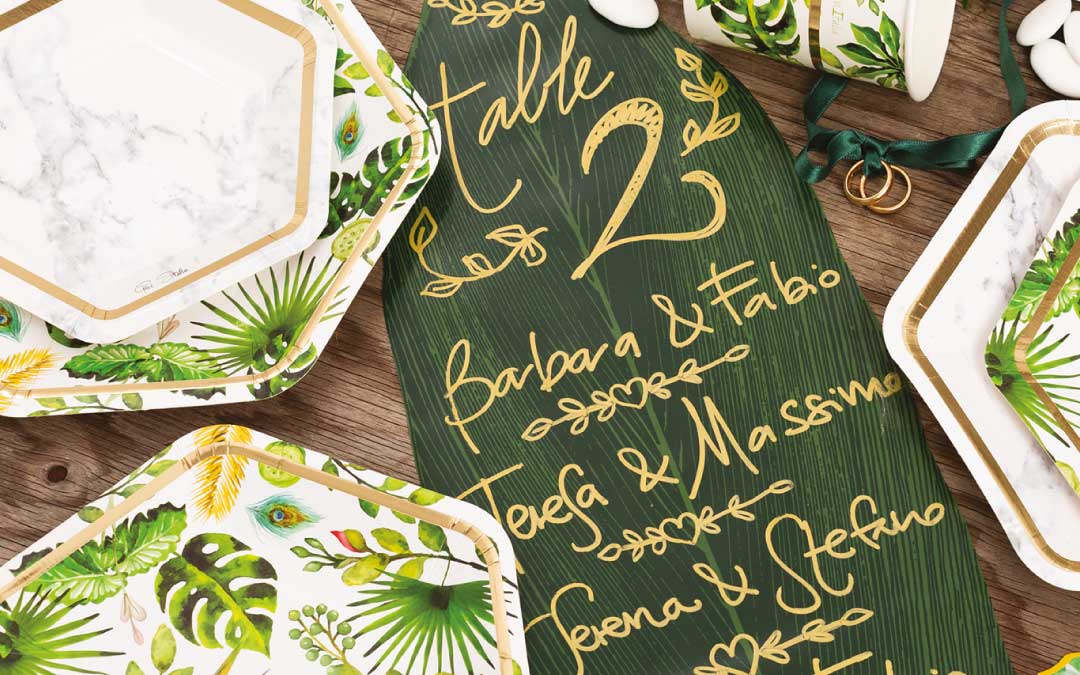 table
2
Barbara & Fabio
Teresa & Massimo
Serena & Stefano